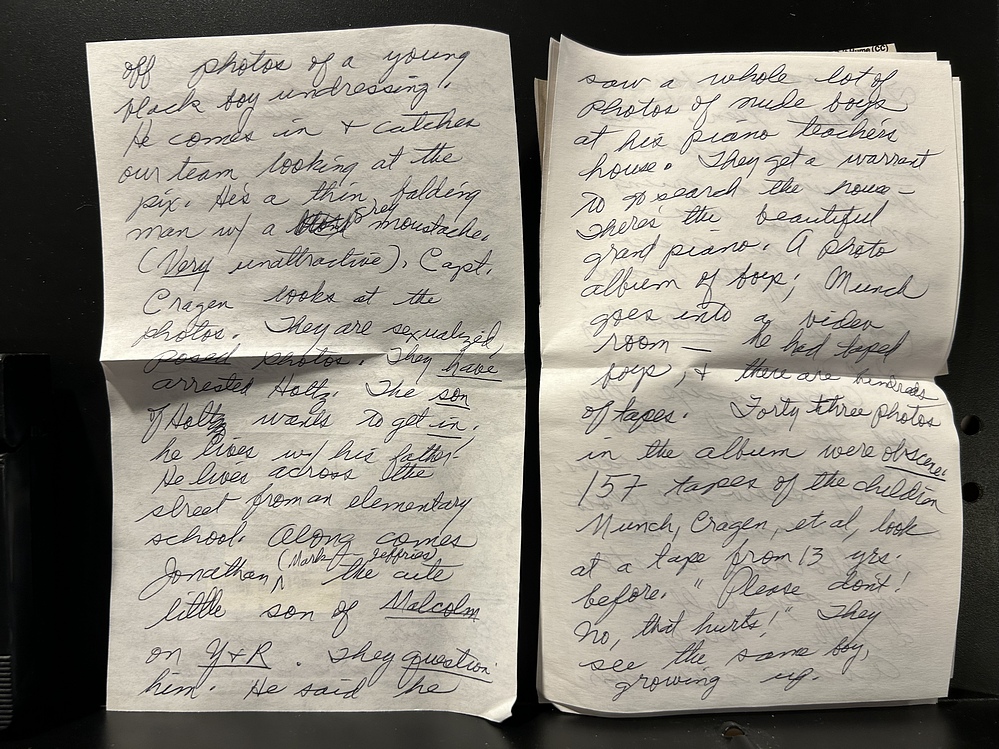 off photos of a young
black boy undressing.
He comes in + catches
our team looking at the
pix. He's a thin, balding
man w/ a grey moustache.
(Very unattractive). Capt.
Cragen looks at the
photos. They are sexualized,
posed photos. They have
arrested Holtz. The son
of Holtz wants to get in.
he lives w/ his father.
He lives across the
street from an elementary
school. Along comes
Jonathan, (Mark Jeffries) the cute
little son of Malcolm
on Y+R. They question
him. He said he
saw a whole lot of
photos of nude boys
at his piano teachers
house. They get a warrant
to search the house –
There's the beautiful
grand piano. A photo
album of boys; Munch
goes into a video
room — he had taped
boys, + there are hundreds
of tapes. Forty three photos
in the album were obscene.
157 tapes of the children
Munch, Cragen, et al, look
at a tape from 13 yrs.
before. "Please don't!
No, that hurts!" They
see the same boy,
growing up.